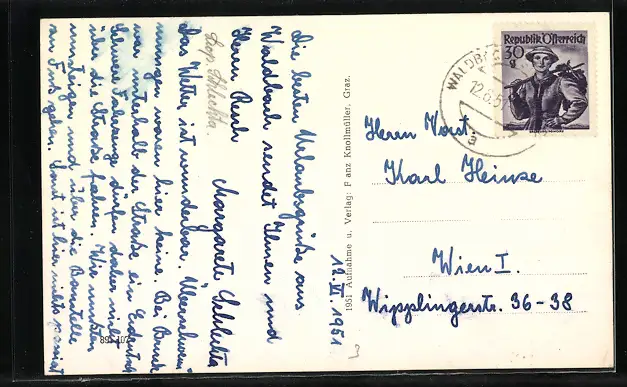 Die besten Urlaubsgrüße aus
Waldbach sendet Ihnen und
Herrn Resch Margarete Schlechta
Insp. Schlechta.
Das Wetter ist wunderbar. Überschwem-
mungen waren hier keine. Bei Bruck
war unterhalb der Straße ein Erdrutsch
schwere Fahrzeuge dürfen daher nicht
über die Straße fahren. Wir mußten
umsteigen und über die Baustelle
zu Fuß gehen. Sonst ist hier nichts passiert
12.VI.1951
895 107
1951 Aufnahme u. Verlag: Franz Knollmüller, Graz.
3
Republik Österreich
30
g
WALDBACH
12.6.51
Herrn Vorst.
Karl Heinze
Wien I.
Wipplingerstr. 36-38